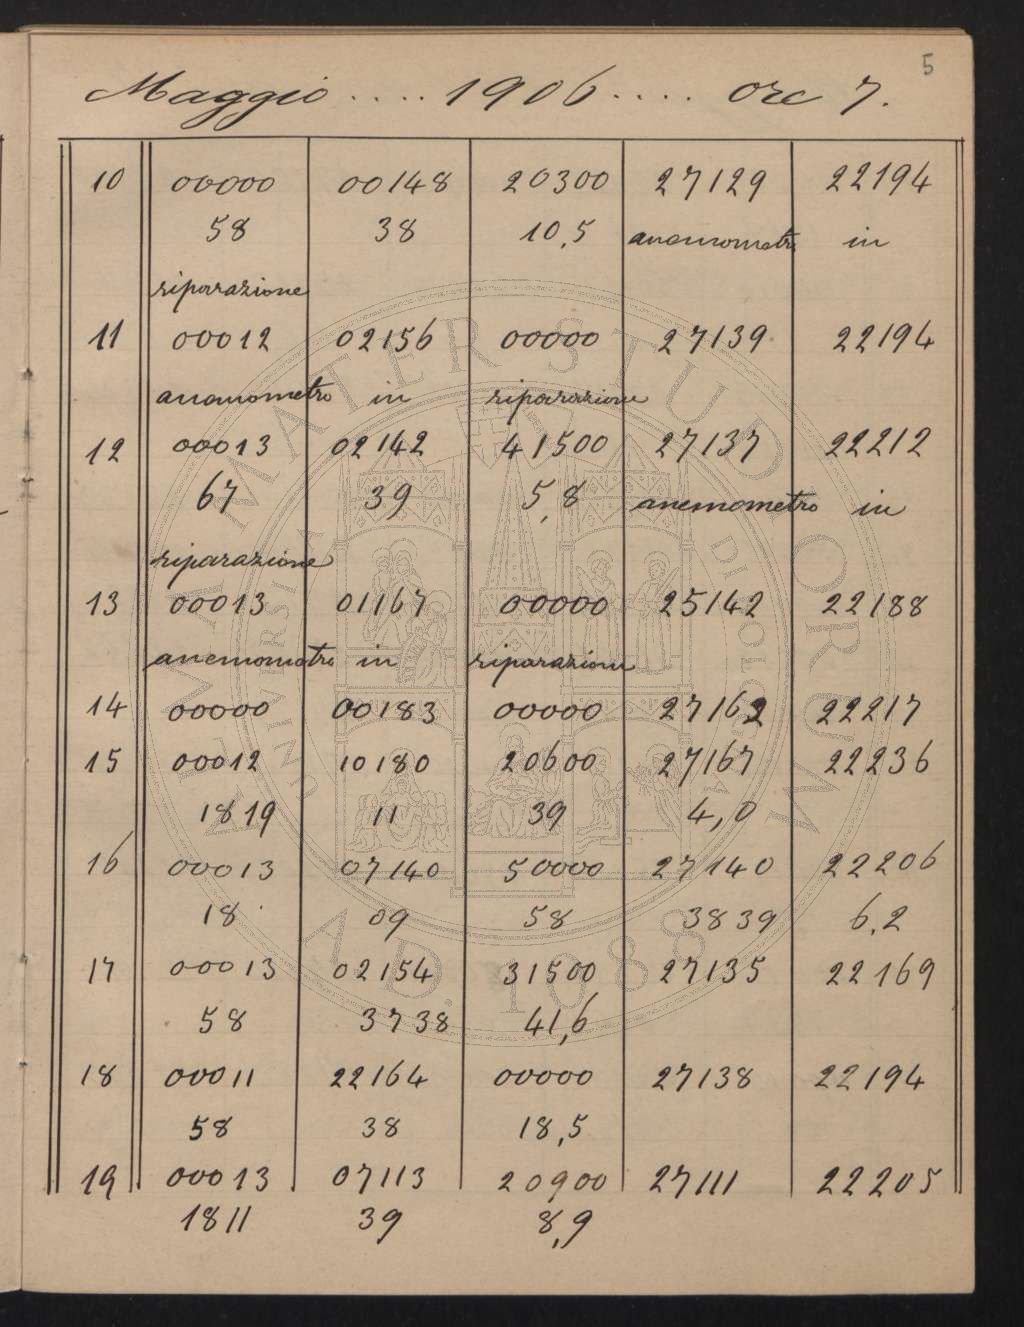 5
Maggio .... 1906 .... ore 7.
10 00000 00148 20300 27129 22194
58 38 10,5 anemometro in
riparazione
11 00012 02156 00000 27139 22194
anemometro in riparazione
12 00013 02142 41500 27137 22212
67 39 5,8 anemometro in
riparazione
13 00013 01167 00000 25142 22188
anemometro in riparazione
14 00000 00183 00000 27162 22217
15 00012 10180 20600 27167 22236
1819 11 39 4,0
16 00013 07140 50000 27140 22206
18 09 58 3839 6,2
17 00013 02154 31500 27135 22169
58 3738 41,6
18 00011 22164 00000 27138 22194
58 38 18,5
19 00013 07113 20900 27111 22205
1811 39 8,9
ALMA MATER STUDIORUM
UNIVERSITÀ DI BOLOGNA
A.D. 1088